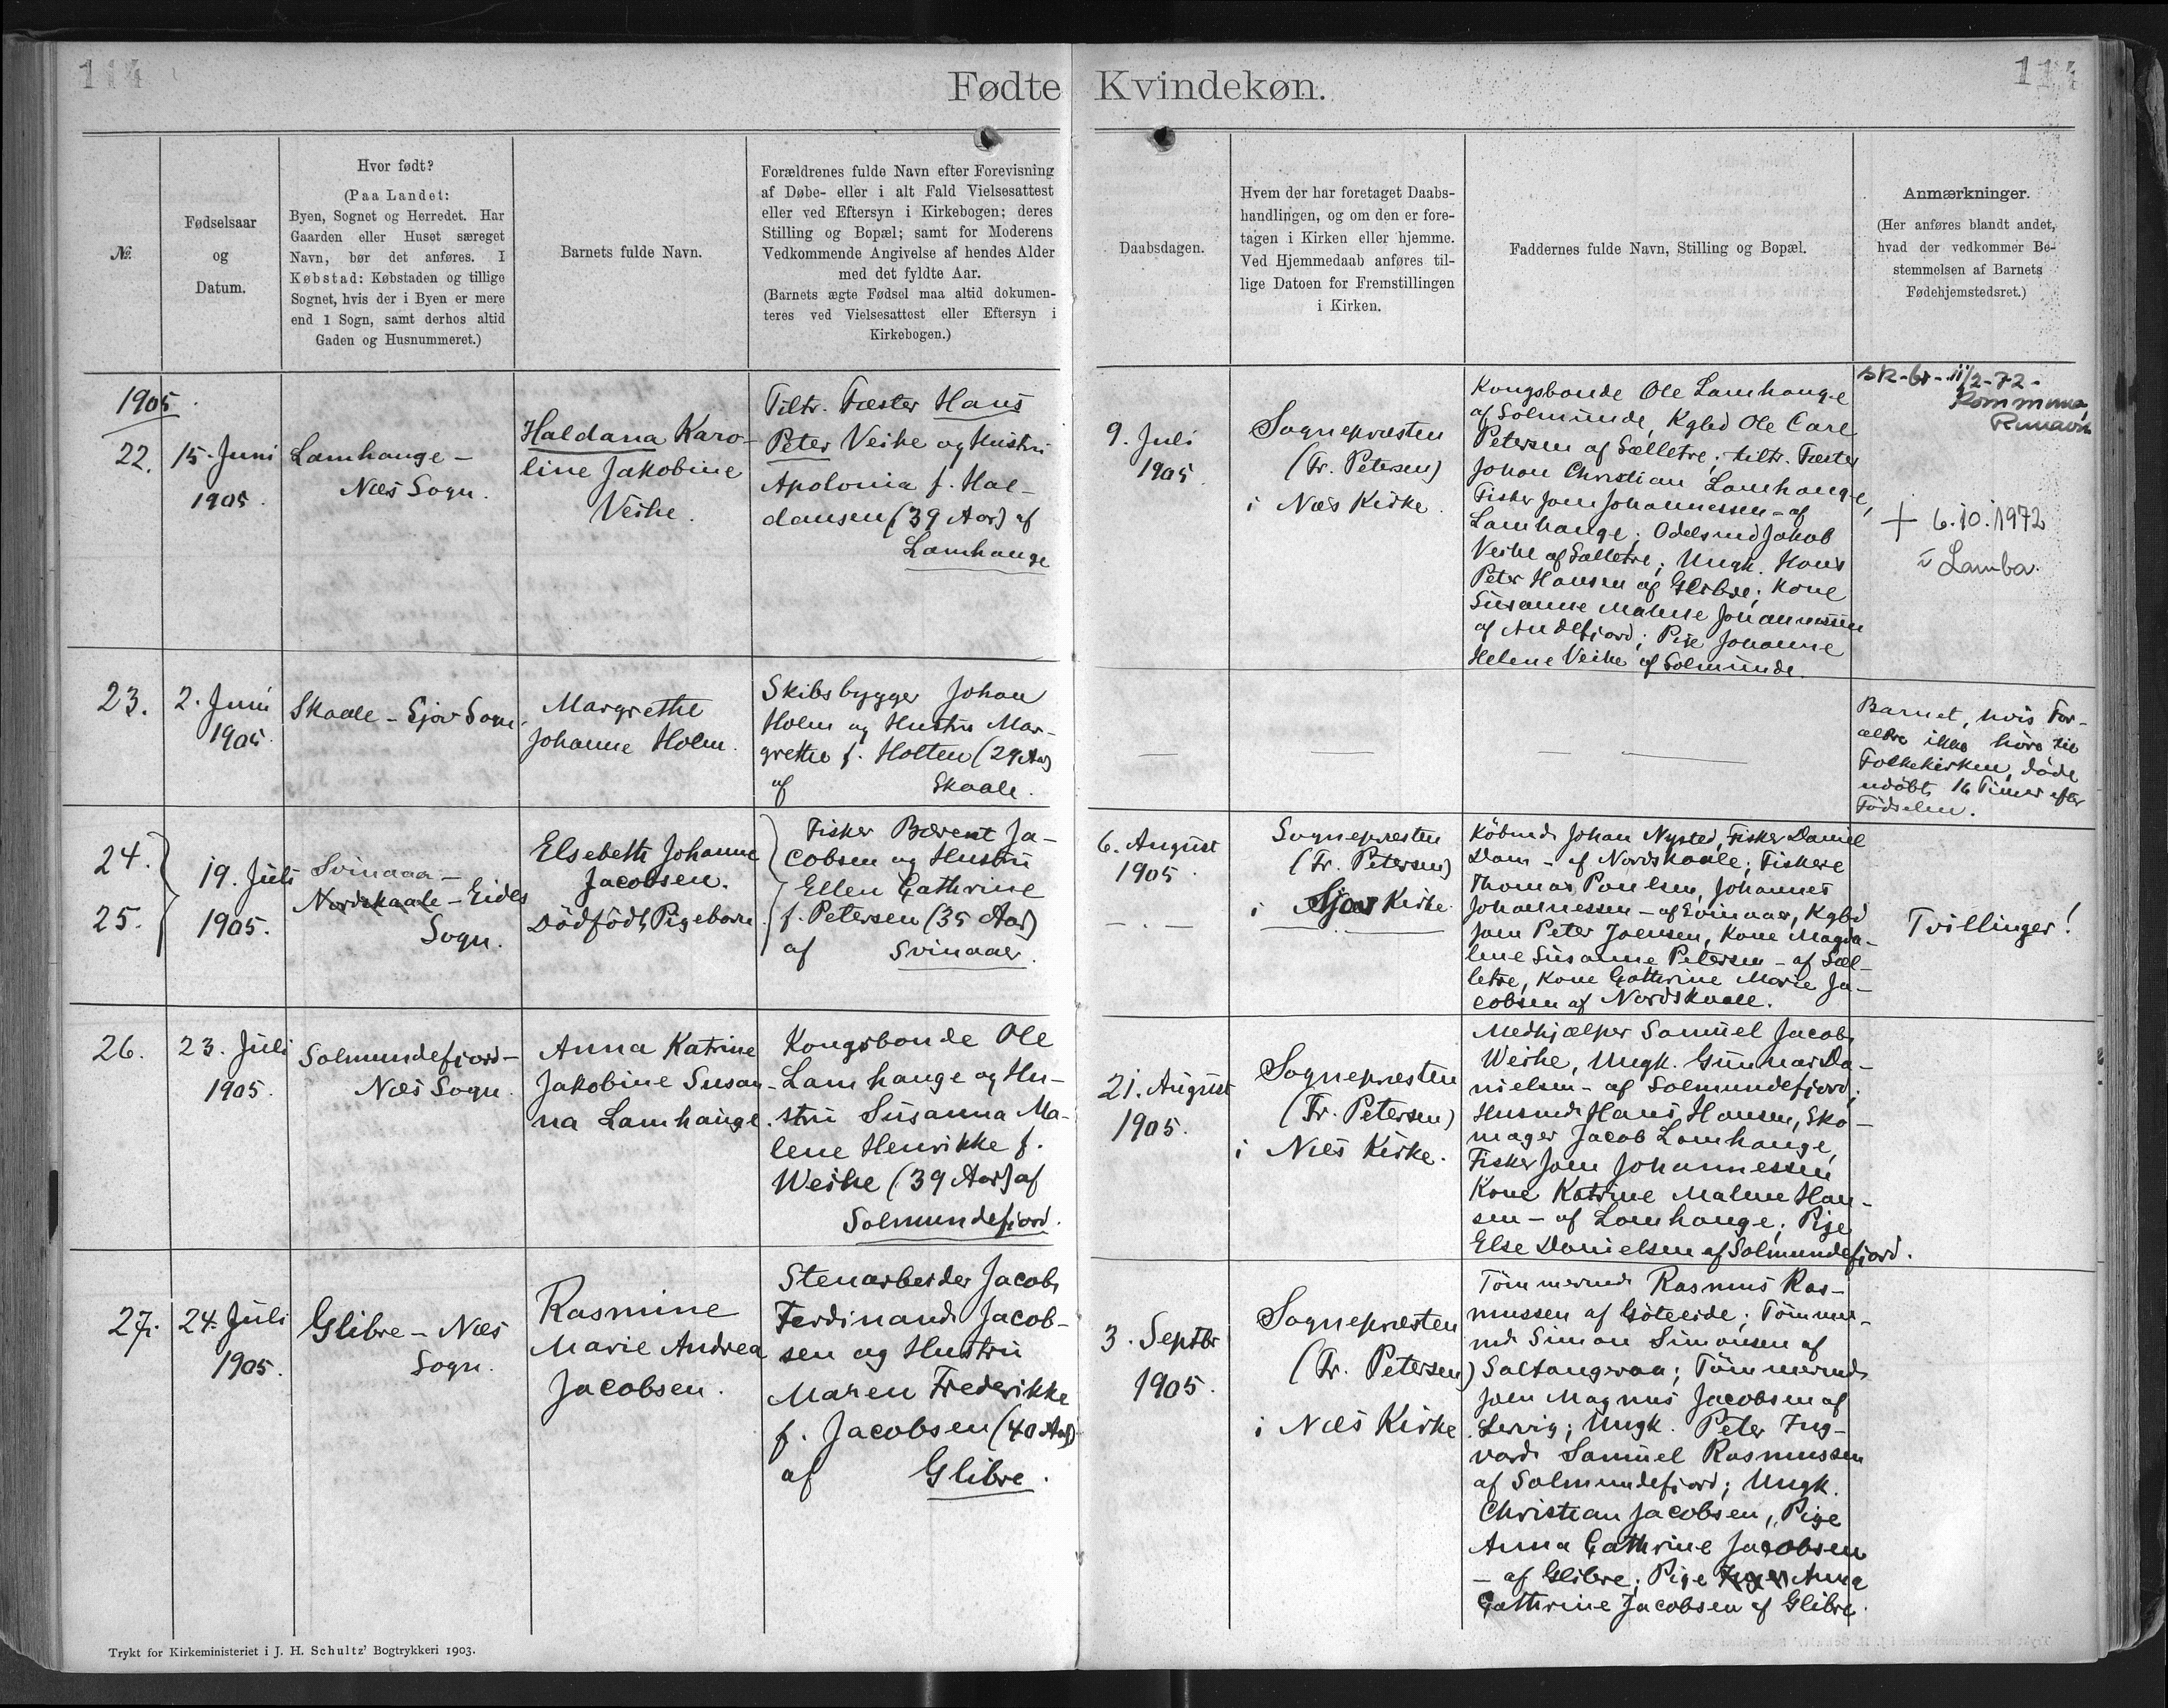 114
114
Fødte Kvindekøn.
№
Fødselsaar
og
Datum.
Hvor født?
(Paa Landet:
Byen, Sognet og Herredet. Har
Gaarden eller Huset særeget
Navn, bør det anføres. I
Købstad: Købstaden og tillige
Sognet, hvis der i Byen er mere
end 1 Sogn, samt derhos altid
Gaden og Husnummeret.)
Barnets fulde Navn.
Forældrenes fulde Navn efter Forevisning
af Døbe- eller i alt Fald Vielsesattest
eller ved Eftersyn i Kirkebogen; deres
Stilling og Bopæl; samt for Moderens
Vedkommende Angivelse af hendes Alder
med det fyldte Aar.
(Barnets ægte Fødsel maa altid dokumen-
teres ved Vielsesattest eller Eftersyn i
Kirkebogen.)
Daabsdagen.
Hvem der har foretaget Daabs-
handlingen, og om den er fore-
tagen i Kirken eller hjemme.
Ved Hjemmedaab anføres til-
lige Datoen for Fremstillingen
i Kirken.
Faddernes fulde Navn, Stilling og Bopæl.
Anmærkninger.
(Her anføres blandt andet,
hvad der vedkommer Be-
stemmelsen af Barnets
Fødehjemstedsret.)
1905
22.
15. Juni
1905.
Lamhauge -
Næs Sogn.
Haldana Karo-
line Jakobine
Veihe.
Tiltr. Fæster Hans
Peter Veihe og Hustru
Apolonia f. Hal-
dansen (39 Aar) af
Lamhauge
9. Juli
1905.
Sognepræsten
(Fr. Petersen)
i Næs Kirke.
Kongsbonde Ole Lamhauge
af Solmunde, Kgbd Ole Carl
Petersen af Sælletre; tiltr. Fæster
Johan Christian Lamhauge,
Fisker Joen Johannessen - af
Lamhauge; Odelsmd Jakob
Veihe af Sælletre; Ungk. Hans
Peter Hansen af Glibre; Kone
Susanne Malene Johannessen
af Andefjord; Pige Johanne
Helene Veihe af Solmunde.
11/2-72-
Kommuna
Runavík
+ 6.10.1972
í Lamba.
23.
2. Juni
1905.
Skaale - Sjov Sogn.
Margrethe
Johanne Holm.
Skibsbygger Johan
Holm og Hustru Mar-
grethe f. Holten (29 Aar)
af Skaale.
Barnet, hvis For-
ældre ikke høre til
Folkekirken, døde
udøbt 16 Timer efter
Fødselen.
24.
25.
19. Juli
1905.
Svinaaa -
Nordskaale - Eides
Sogn.
Elsebeth Johanne
Jacobsen.
Dødfødt Pigebarn
Fisker Bærent Ja-
cobsen og Hustru
Ellen Cathrine
f. Petersen (35 Aar)
af Svinaaer.
6. August
1905.
- . -
Sognepræsten
(Fr. Petersen)
i Sjov Kirke
Købmd Johan Nysted, Fisker Daniel
Dam - af Nordskaale; Fiskere
Thomas Poulsen, Johannes
Johannessen - af Svinaaer, Kgbd
Joen Peter Joensen, Kone Magda-
lene Susanne Petersen - af Sæl-
letre, Kone Cathrine Marie Ja-
cobsen af Nordskaale.
Tvillinger!
26.
23. Juli
1905.
Solmundefjord -
Næs Sogn.
Anna Katrine
Jakobine Susan-
na Lamhauge.
Kongsbonde Ole
Lamhauge og Hu-
stru Susanna Ma-
lene Henrikke f.
Weihe (39 Aar) af
Solmundefjord.
21. August
1905.
Sognepræsten
(Fr. Petersen)
i Næs Kirke.
Medhjælper Samuel Jacob
Weihe, Ungk. Gunnar Da-
nielsen - af Solmundefjord;
Husmd Hans Hansen, Sko-
mager Jacob Lamhauge,
Fisker Joen Johannessen
Kone Katrine Malene Han-
sen - af Lamhauge; Pige
Else Danielsen af Solmundefjord.
27.
24. Juli
1905.
Glibre - Næs
Sogn.
Rasmine
Marie Andrea
Jacobsen.
Stenarbeider Jacob
Ferdinand Jacob-
sen og Hustru
Maren Frederikke
f. Jacobsen (40 Aar)
af Glibre.
3. Septbr
1905.
Sognepræsten
(Fr. Petersen)
i Næs Kirke
Tømmermd Rasmus Ras-
mussen af Göteeide; Tømmer-
md Simon Simonsen af
Saltangeraa; Tømmermd
Joen Magnus Jacobsen af
Lervig; Ungk. Peter Ing-
vard Samuel Rasmussen
af Solmundefjord; Ungk.
Christian Jacobsen, Pige
Anna Cathrine Jacobsen
- af Glibre; Pige Anna
Cathrine Jacobsen af Glibre.
Trykt for Kirkeministeriet i J. H. Schultz' Bogtrykkeri 1903.